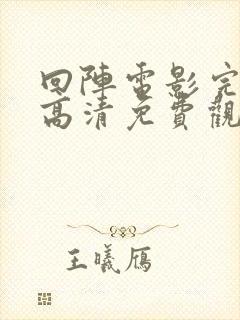 回陣電影完
高清免費觀
王曦雁